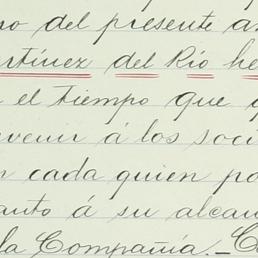 o del presente a
artínez del Río he
el tiempo que
venir á los soci
n cada quien po
anto á su alcan
la Compañía. _ C